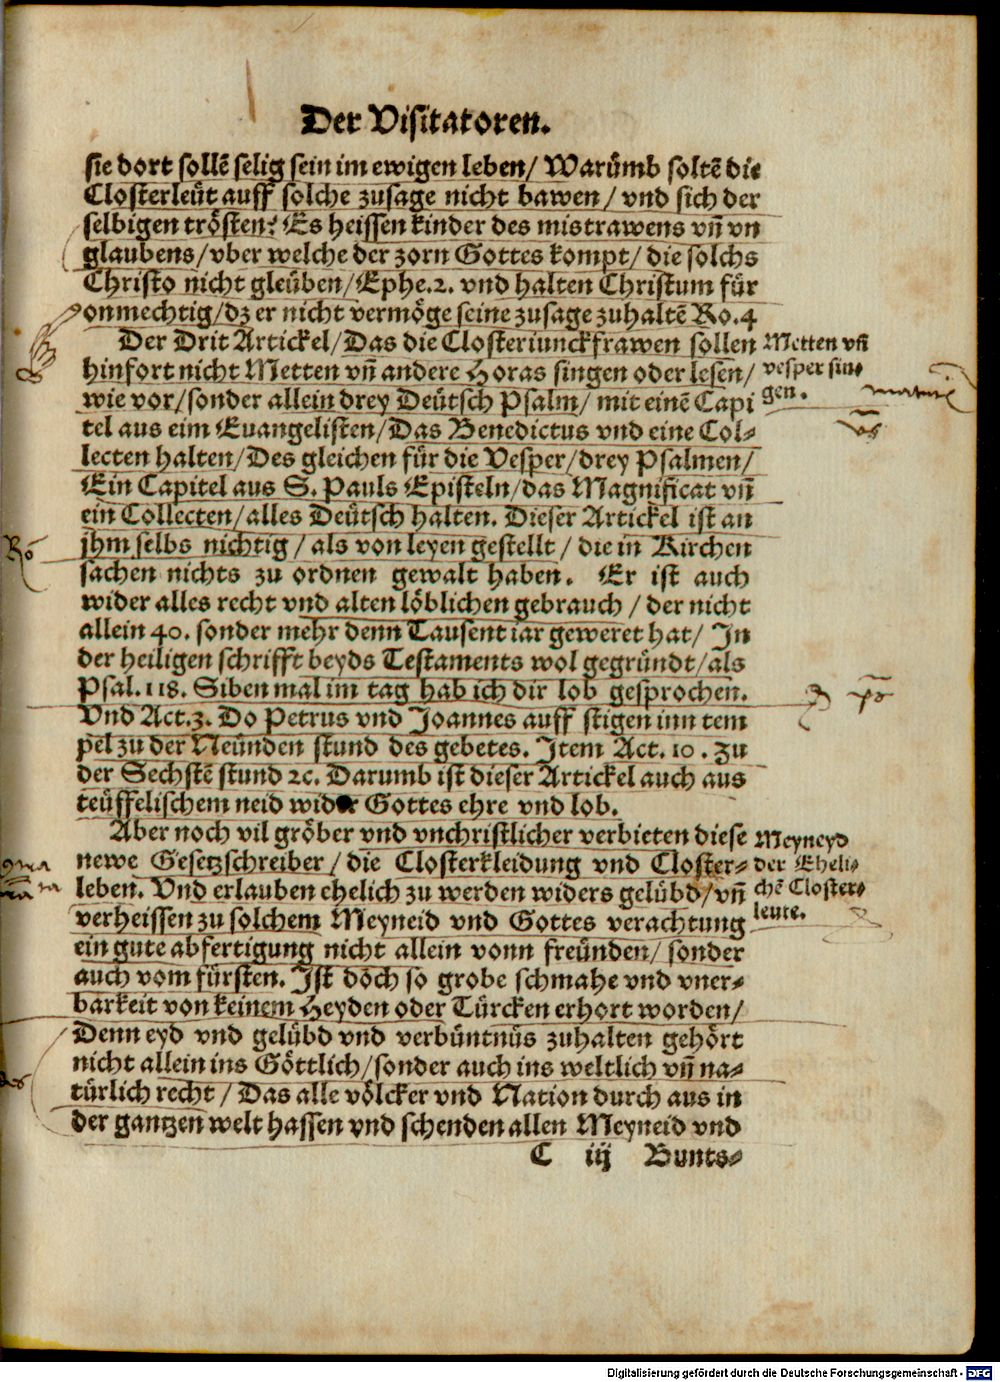 Der Visitatoren.
sie dort sollē selig sein im ewigen leben/ Warůmb soltē die
Closterleüt auff solche zusage nicht bawen/ vnd sich der
selbigen trösten? Es heissen kinder des mistrawens vñ vn
glaubens/vber welche der zorn Gottes kompt/ die solchs
Christo nicht gleüben/Ephe.2. vnd halten Christum für
onmechtig/dz er nicht vermöge seine zusage zuhaltē Ro.4
Der Drit Artickel/Das die Closteriunckfrawen sollen
hinfort nicht Metten vñ andere Horas singen oder lesen/
wie vor/sonder allein drey Deütsch Psalm/ mit einē Capi
tel aus eim Euangelisten/Das Benedictus vnd eine Col⸗
lecten halten/Des gleichen für die Vesper/drey Psalmen/
Ein Capitel aus S. Pauls Episteln/das Magnificat vñ
ein Collecten/alles Deütsch halten. Dieser Artickel ist an
jhm selbs nichtig/ als von leyen gestellt/ die in Kirchen
sachen nichts zu ordnen gewalt haben. Er ist auch
wider alles recht vnd alten löblichen gebrauch/ der nicht
allein 40. sonder mehr denn Tausent iar geweret hat/ In
der heiligen schrifft beyds Testaments wol gegründt/als
Psal.118. Siben mal im tag hab ich dir lob gesprochen.
Vnd Act.3. Do Petrus vnd Joannes auff stigen inn tem
pel zu der Neünden stund des gebetes. Item Act. 10. Zu
der Sechstē stund ꝛc. Darumb ist dieser Artickel auch aus
teüffelischem neid wider Gottes ehre vnd lob.
Aber noch vil gröber vnd vnchristlicher verbieten diese
newe Gesetzschreiber/ die Closterkleidung vnd Closter⸗
leben. Vnd erlauben ehelich zu werden widers gelübd/vñ
verheissen zu solchem Meyneid vnd Gottes verachtung
ein gute abfertigung nicht allein vonn freünden/ sonder
auch vom fürsten. Ist dōch so grobe schmahe vnd vner⸗
barkeit von keinem Heyden oder Türcken erhort worden/
Denn eyd vnd gelübd vnd verbüntnüs zuhalten gehört
nicht allein ins Göttlich/sonder auch ins weltlich vñ na⸗
türlich recht/ Das alle völcker vnd Nation durch aus in
der gantzen welt hassen vnd schenden allen Meyneid vnd
C iij Bunts⸗
Metten vñ
vesper sin⸗
gen.
Meyneyd
der Eheli⸗
chē Closter⸗
leute.
Digitalisierung gefördert durch die Deutsche Forschungsgemeinschaft - DFG